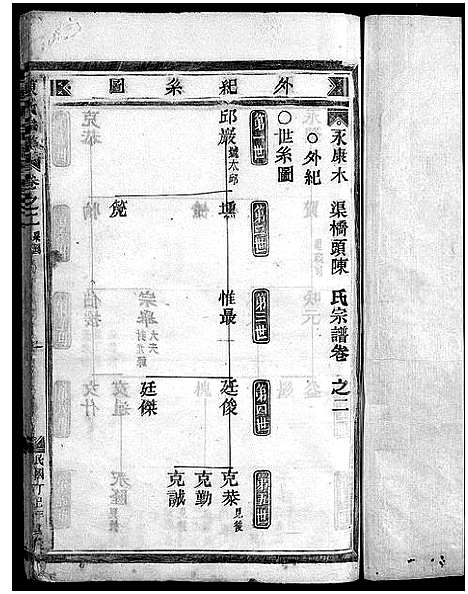 外紀系圖
永康木渠橋頭陳氏宗譜卷之二
○外紀
○世系圖
第一世
第二世
第三世
第四世
第五世
邱巖 號太邱
壎
惟最
廷俊
克恭 見後
克勤
克誠
廷傑
篪
民國丁巳